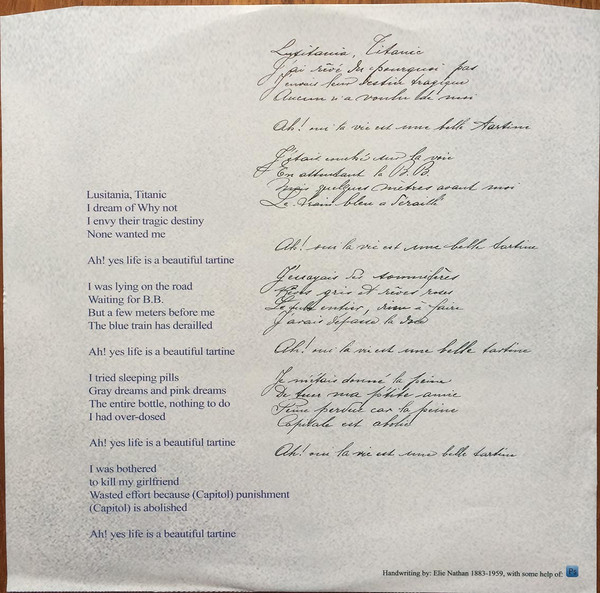 Lusitania, Titanic
I dream of Why not
I envy their tragic destiny
None wanted me
Ah! yes life is a beautiful tartine
I was lying on the road
Waiting for B.B.
But a few meters before me
The blue train has derailled
Ah! yes life is a beautiful tartine
I tried sleeping pills
Gray dreams and pink dreams
The entire bottle, nothing to do
I had over-dosed
Ah! yes life is a beautiful tartine
I was bothered
to kill my girlfriend
Wasted effort because (Capitol) punishment
(Capitol) is abolished
Ah! yes life is a beautiful tartine
Lusitania, Titanic
J'ai rêvé du pourquoi pas
J'enviais leur destin tragique
Aucun n'a voulu de moi
Ah! oui la vie est une belle tartine
J'étais couché sur la voie
En attendant le B.B.
Mais quelques mètres avant moi
Le train bleu a
Ah! oui la vie est une belle tartine
J'essayais des somnifères
Rêves gris et rêves roses
Le entier, rien à faire
J'avais dépassé la dose
Ah! oui la vie est une belle tartine
Je m'étais donné la peine
De tuer ma p'tite amie
Peine perdue car la peine
Capitale est abolie
Ah! oui la vie est une belle tartine
Handwriting by: Elie Nathan 1883-1959, with some help of: Ps